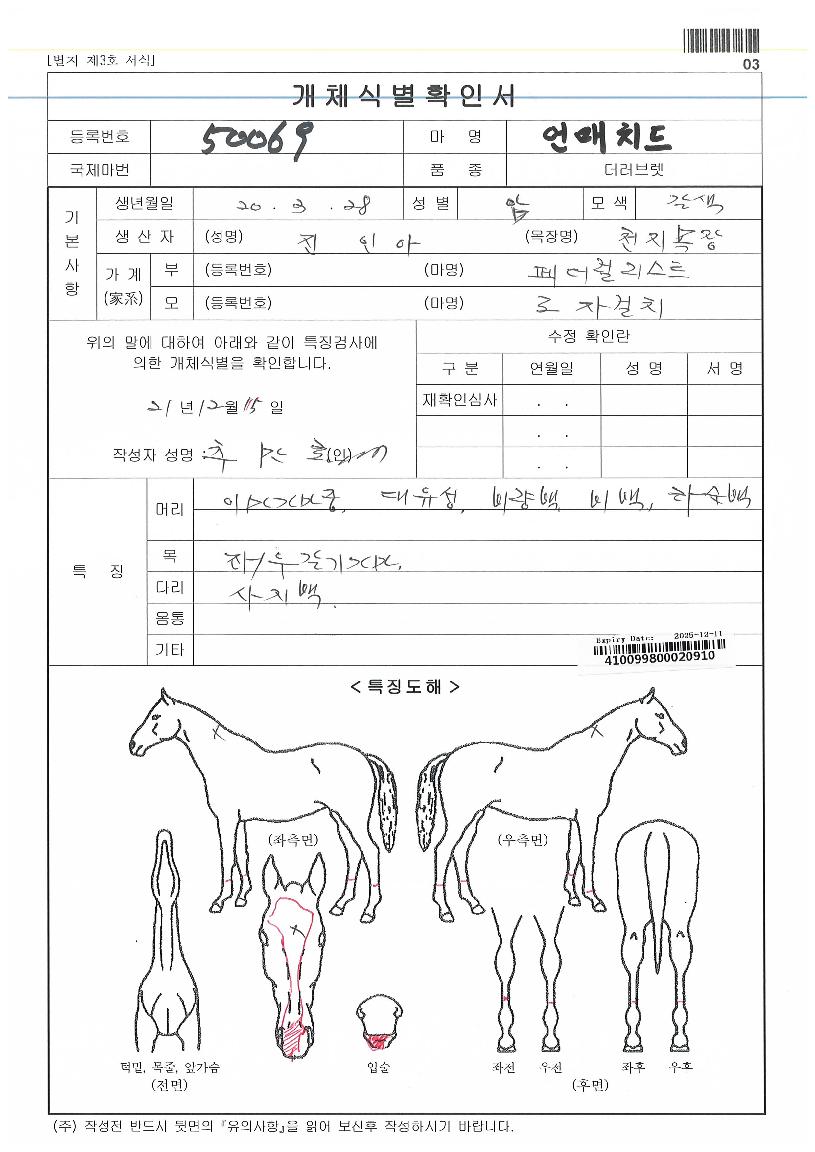 03
[별지 제3호 서식]
개체식별확인서
등록번호 50069 마 명 언매치드
국제마번 품 종 더러브렛
기본사항 생년월일 20 . 3 . 28 성 별 암 모 색 갈색
생 산 자 (성명) 진 인 아 (목장명) 천지목장
가 계 (家系) 부 (등록번호) (마명) 페더럴리스트
모 (등록번호) (마명) 로 자걸치
위의 말에 대하여 아래와 같이 특징검사에
의한 개체식별을 확인합니다.
21 년 12 월 15 일
작성자 성명 : (인)
수정 확인란
구 분 연월일 성 명 서 명
재확인심사 . .
. .
. .
특 징
머리 대유성, 비량백, 비백, 하순백
목 좌/우갈기
다리 사지백.
몸통
기타
Expiry Date: 2025-12-11
410099800020910
< 특징도해 >
(좌측면) (우측면)
턱밑, 목줄, 앞가슴 입술 좌전 우전 좌후 우후
(전면) (후면)
(주) 작성전 반드시 뒷면의 『유의사항』을 읽어 보신후 작성하시기 바랍니다.